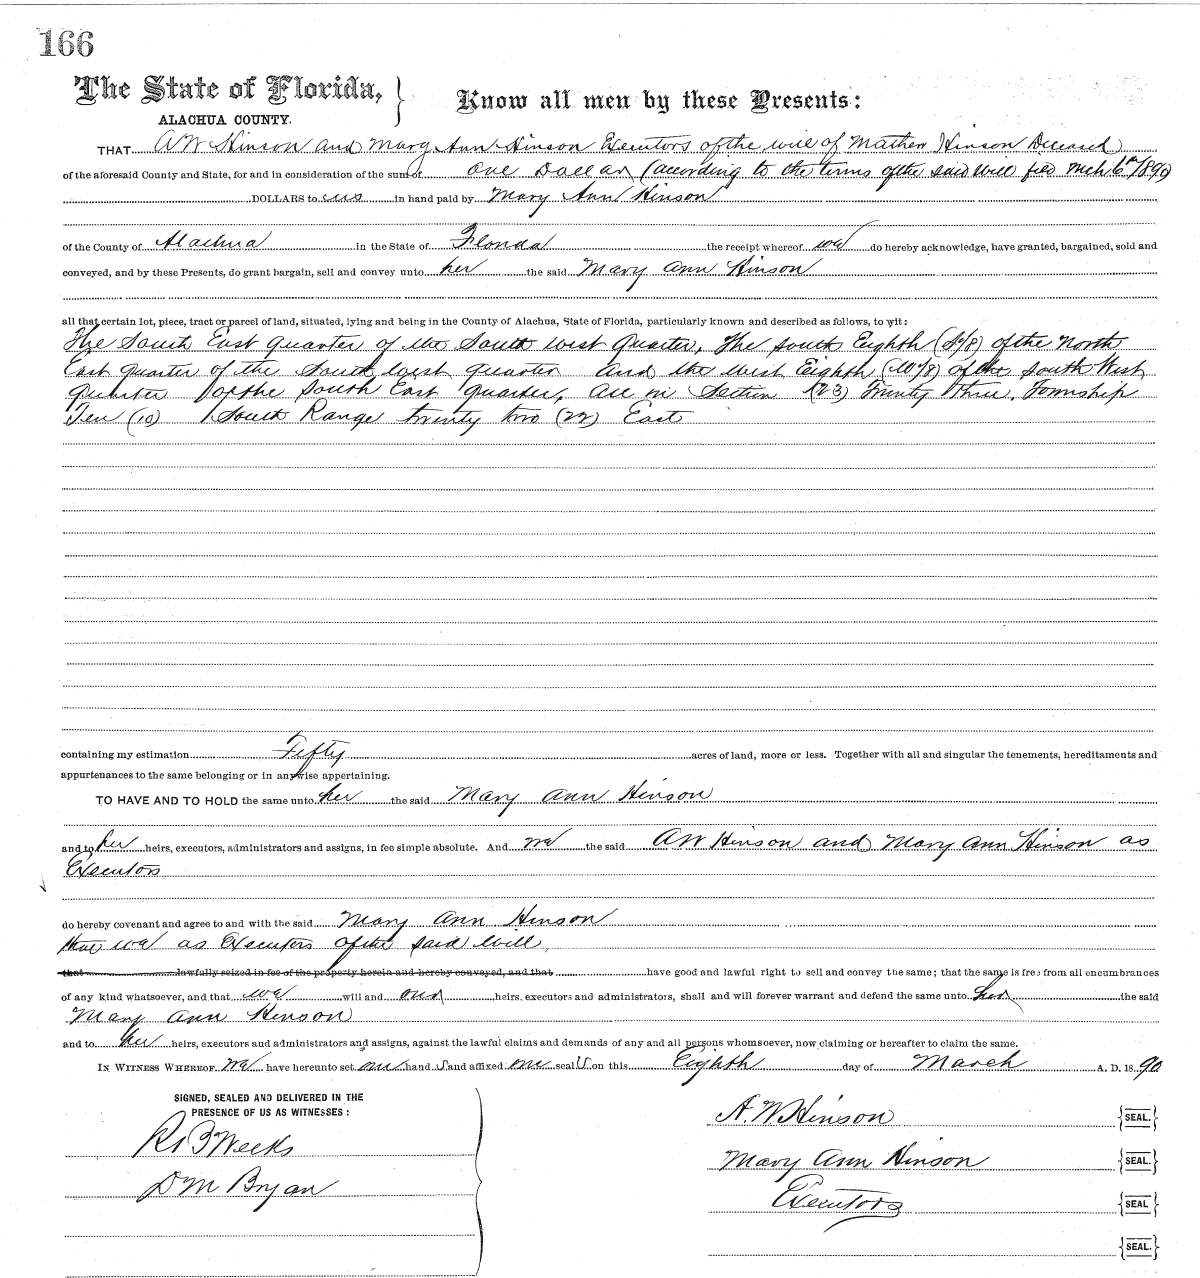 166
The State of Florida,
ALACHUA COUNTY.
Know all men by these Presents:
THAT A W Hinson and Mary Ann Hinson Executors of the will of Mathew Hinson Deceased
of the aforesaid County and State, for and in consideration of the sum of One Dollar (according to the terms of the said will filed Mch 6th 1890
DOLLARS to us in hand paid by Mary Ann Hinson
of the County of Alachua in the State of Florida the receipt whereof we do hereby acknowledge, have granted, bargained, sold and
conveyed, and by these Presents, do grant bargain, sell and convey unto her the said Mary Ann Hinson
all that certain lot, piece, tract or parcel of land, situated, lying and being in the County of Alachua, State of Florida, particularly known and described as follows, to wit:
The South East quarter of the South West Quarter, The South Eighth (S 1/8) of the North
East quarter of the South West quarter and the West Eighth (W 1/8) of the South West
quarter of the South East quarter, all in Section (23) Twenty three, Township
Ten (10) South Range twenty two (22) East
containing my estimation Fifty acres of land, more or less. Together with all and singular the tenements, hereditaments and
appurtenances to the same belonging or in anywise appertaining.
TO HAVE AND TO HOLD the same unto her the said Mary Ann Hinson
and to her heirs, executors, administrators and assigns, in fee simple absolute. And we the said A W Hinson and Mary Ann Hinson as
Executors
do hereby covenant and agree to and with the said Mary Ann Hinson
that we as Executors of the said will,
that lawfully seized in fee of the property herein and hereby conveyed, and that have good and lawful right to sell and convey the same; that the same is free from all encumbrances
of any kind whatsoever, and that we will and our heirs, executors and administrators, shall and will forever warrant and defend the same unto her the said
Mary Ann Hinson
and to her heirs, executors and administrators and assigns, against the lawful claims and demands of any and all persons whomsoever, now claiming or hereafter to claim the same.
IN WITNESS WHEREOF we have hereunto set our hands and affixed our seals on this Eighth day of March A. D. 1890
SIGNED, SEALED AND DELIVERED IN THE
PRESENCE OF US AS WITNESSES:
A. W Hinson SEAL.
R B Weeks
Mary Ann Hinson SEAL.
D M Bryan
Executors SEAL
SEAL.